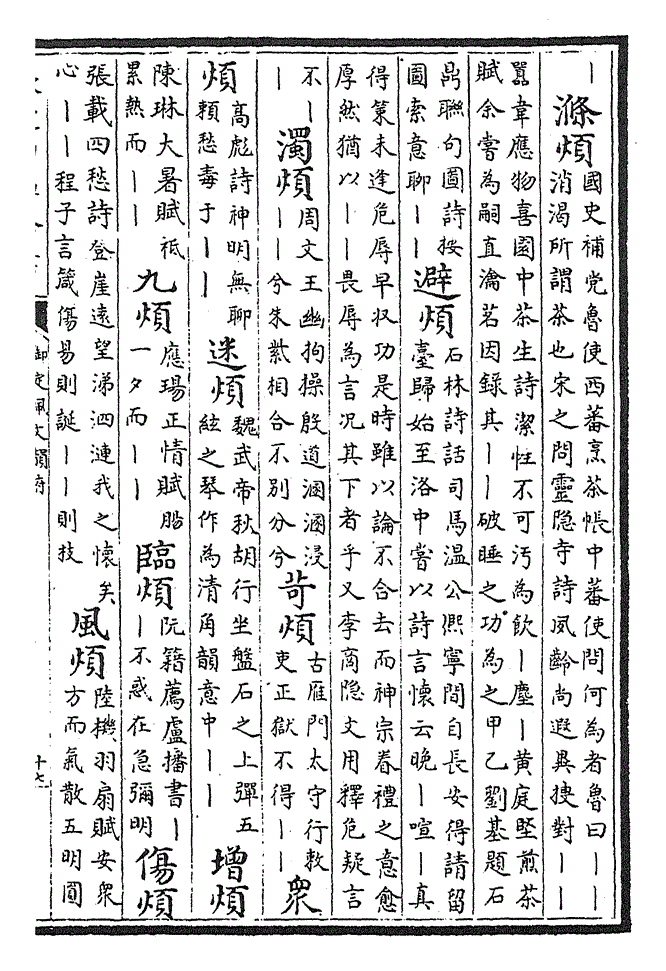 ｜滌煩國史補党魯使西蕃烹茶帳中蕃使問何為者魯曰｜｜消渴所謂茶也宋之問靈隐寺詩夙齡尚遐異捜對｜｜
囂韋應物喜園中茶生詩潔性不可汚為飲｜塵｜黄庭堅煎茶賦余嘗為嗣直瀹茗因録其｜｜破睡之功為之甲乙劉基題石
鼎聯句圖詩按圖索意聊｜｜避煩石林詩話司馬温公熙寧間自長安得請留臺歸始至洛中嘗以詩言懷云晚｜喧｜真
得策未逢危辱早収功是時雖以論不合去而神宗眷禮之意愈厚然猶以｜｜畏辱為言况其下者乎又李商隐文用釋危疑言
不｜｜濁煩周文王幽拘操殷道溷溷浸｜｜兮朱紫相合不别分兮苛煩古雁門太守行敕吏正獄不得｜｜衆
煩高彪詩神明無聊頼愁毒于｜｜迷煩魏武帝秋胡行坐盤石之上彈五絃之琴作為清角韻意中｜｜增煩
陳琳大暑賦祗累熱而｜｜九煩應瑒正情賦腸一夕而｜｜臨煩阮籍薦盧播書｜｜不惑在急彌明傷煩
張載四愁詩登崖遠望涕泗漣我之懷矣心｜｜程子言箴傷易則誕｜｜則技風煩陸機羽扇賦安衆方而氣散五明圓
御定佩文韻府
十七